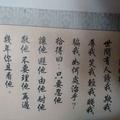 世間有人謗我欺我
辱我笑我輕我賤我
騙我如何處治乎
拾得曰只要忍他
讓他避他由他耐他
敬他不要理他再過
幾年你且看他